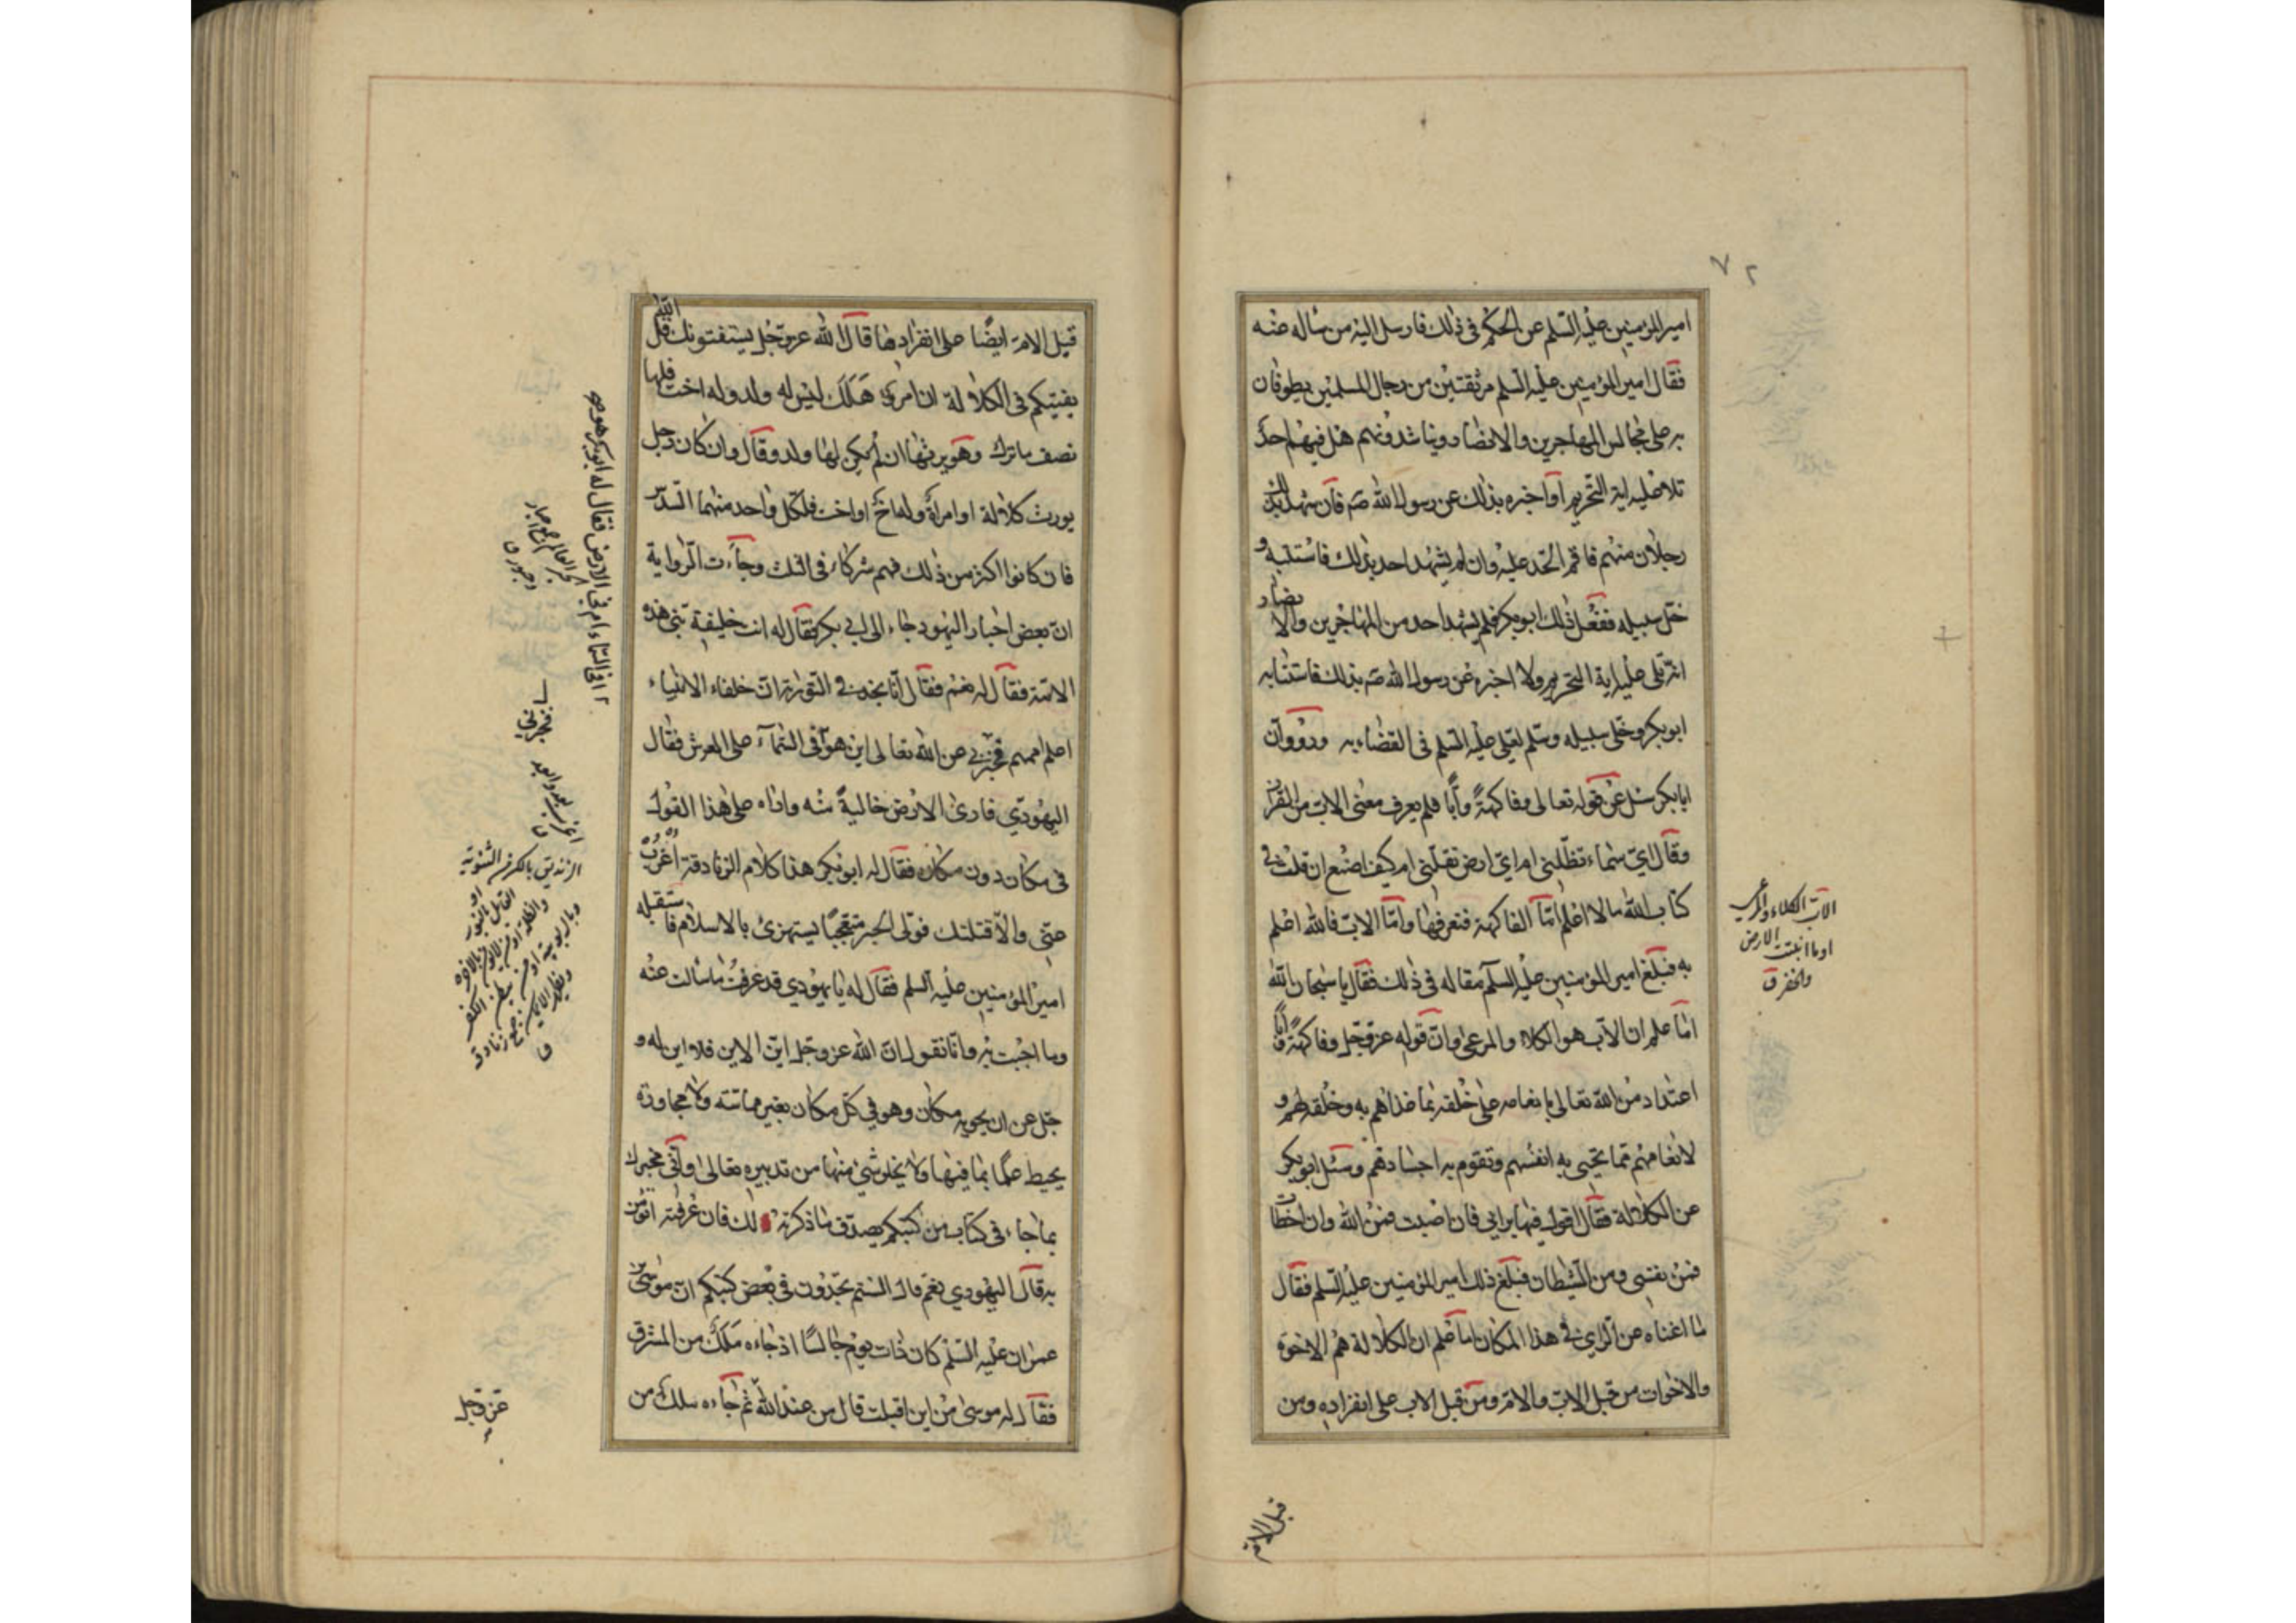 ٧٢
امير المؤمنين عليه السلم عن الحكم فى ذلك فارسل اليه من ساله عنه
فقال امير المؤمنين عليه السلم مر ثقتين من رجال المسلمين يطوفان
به على مجالس المهاجرين والانصار ويناشدونهم هل فيهم احد
تلا عليه اية التحريم او اخبره بذلك عن رسول الله صم فان شهد بذلك
رجلان منهم فاقم الحد عليه وان لم يشهد احد بذلك فاستتبه و
خل سبيله ففعل ذلك ابوبكر فلم يشهد احد من المهاجرين والانصار
انه تلى عليه اية التحريم ولا اخبره عن رسول الله صم بذلك فاستتابه
ابوبكر وخلى سبيله وسلم لعلى عليه السلم فى القضاء به ورووا ان
ابابكر سئل عن قوله تعالى وفاكهةً وأبا فلم يعرف معنى الاب من القران
وقال اىّ سماء تظلّنى ام اىّ ارض تقلّنى ام كيف اصنع ان قلت فى
كتاب الله بما لا اعلم امّا الفاكهة فنعرفها وامّا الابّ فالله اعلم
به فبلغ امير المؤمنين عليه السلم مقاله فى ذلك فقال يا سبحان الله
اما علم ان الاب هو الكلاء والمرعى وانّ قوله عز وجل وفاكهة وأبّا
اعتداد من الله تعالى بانعامه على خلقه بما غذاهم به وخلقه لهم و
لانعامهم مما تحيى به انفسهم وتقوم به اجسادهم وسئل ابوبكر
عن الكلالة فقال اقول فيها برايى فان اصبت فمن الله وان اخطات
فمن نفسى ومن الشيطان فبلغ ذلك امير المؤمنين عليه السلم فقال
ما اغناه عن الراى فى هذا المكان اما علم ان الكلالة هم الاخوة
والاخوات من قبل الاب والام ومن قبل الاب على انفراده ومن
الابّ الكلاء والمرعى
او ما انبتت الارض
والخضر ق
قبل الام
قيل الام ايضًا على انفرادها قال الله عز وجل يستفتونك قل الله
يفتيكم فى الكلالة ان امرؤ هَلَكَ ليس له ولد وله اخت فلها
نصف ما ترك وهو يرثها ان لم يكن لها ولد وقال وان كان رجل
يورث كلالة او امراة وله اخ او اخت فلكل واحد منهما السدس
فان كانوا اكثر من ذلك فهم شركاء فى الثلث وجاءت الرواية
انّ بعض احبار اليهود جاء الى ابى بكر فقال له انت خليفة نبى هذه
الامّة فقال له نعم فقال انّا نجد فى التوراة انّ خلفاء الانبياء
اعلم اممهم فخبّرنى عن الله تعالى اين هو فى السماء على العرش فقال
اليهودى فارى الارض خاليةً منه واراه على هذا القول
فى مكان دون مكان فقال له ابوبكر هذا كلام الزنادقة اغرب
عنى والّا قتلتك فولّى الحبر متعجّبًا يستهزئ بالاسلام فاستقبله
امير المؤمنين عليه السلم فقال له يا يهودى قد عرفتُ ما سالت عنه
وما اجبت به وانا نقول انّ الله عز وجل ايّن الاين فلا اين له و
جلّ عن ان يحويه مكان وهو فى كل مكان بغير مماسّة ولا مجاورة
يحيط علمًا بما فيها ولا يخلو شئ منها من تدبيره تعالى وانّى مخبرك
بما جاء فى كتاب من كتبكم يصدّق ما ذكرته لك فان عرفته اتؤمن
به قال اليهودى نعم قال الستم تجدون فى بعض كتبكم ان موسى بن
عمران عليه السلم كان ذات يوم جالسًا اذ جاءه ملك من المشرق
فقال له موسى من اين اقبلت قال من عند الله ثم جاءه ملك من
افى السماء ام فى الارض فقال له ابوبكر هو صح
فخبرنى
اغرب بعد وابعد
ق
الزنديق بالكسر من الثنوية
او القائل بالنور
والظلمة او من لا يؤمن بالاخرة
وبالربوبية او من يبطن الكفر
ويظهر الايمان ج زنادقة
ق
عز وجل